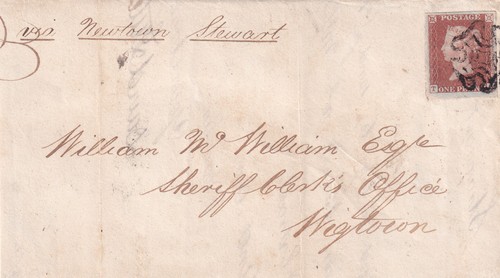 via Newtown Stewart
POSTAGE
ONE PENNY
William McWilliam Esqre
Sheriff Clerk's Office
Wigtown